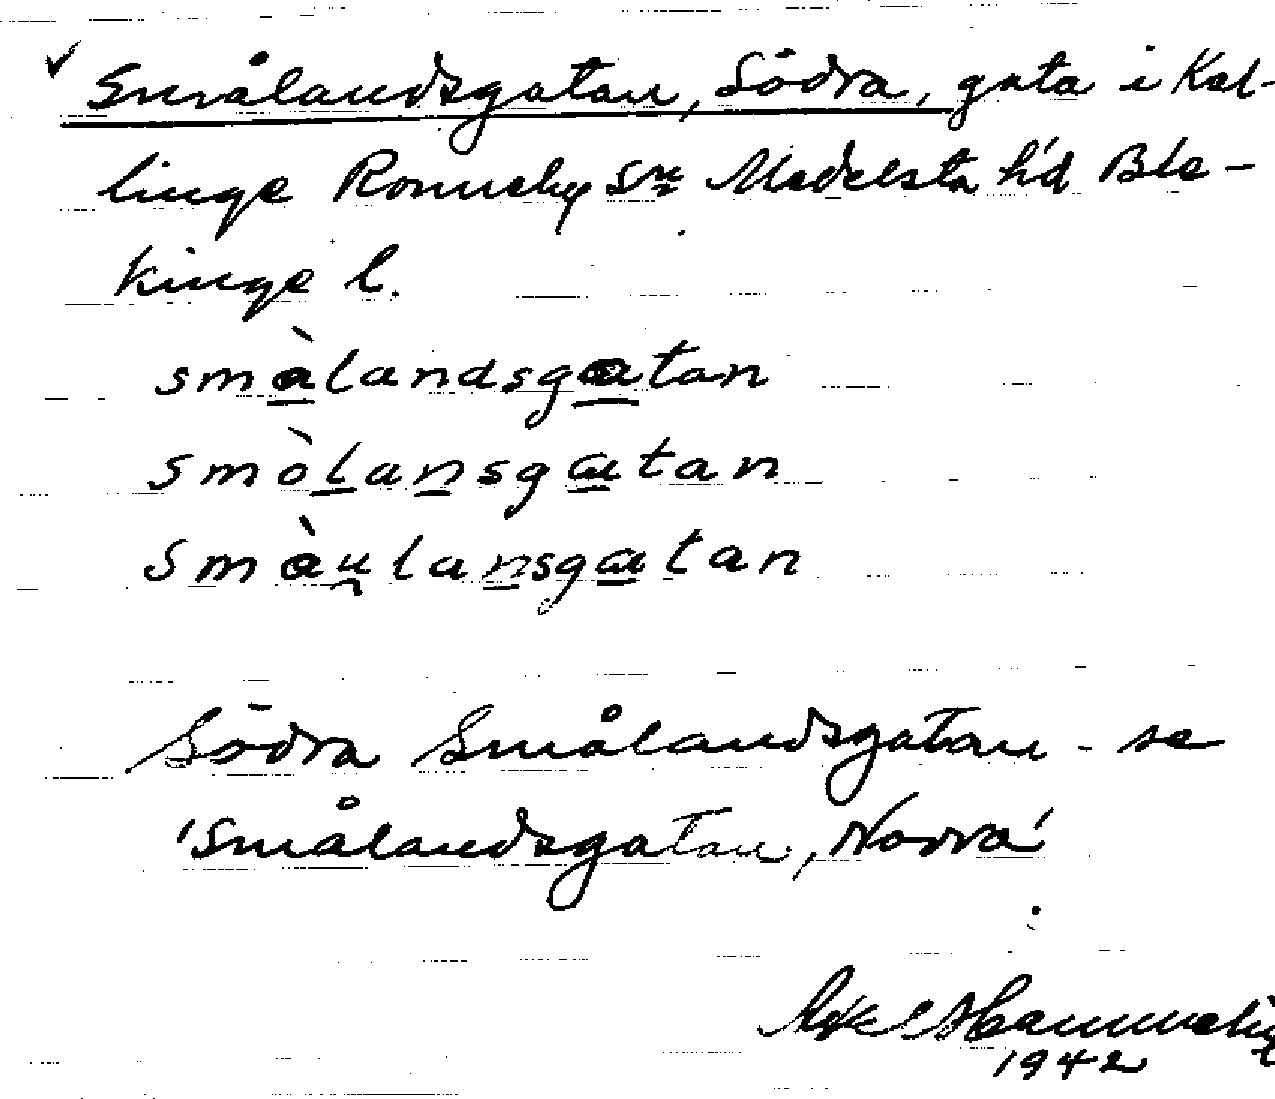 ✓ Smålandsgatan, Södra, gata i Kal-
linge Ronneby sn Medelsta hd Ble-
kinge l.
smålandsgatan
smòlansgatan
smàu̯lansgatan
Södra Smålandsgatan - se
'Smålandsgatan, Norra'
Axel
1942